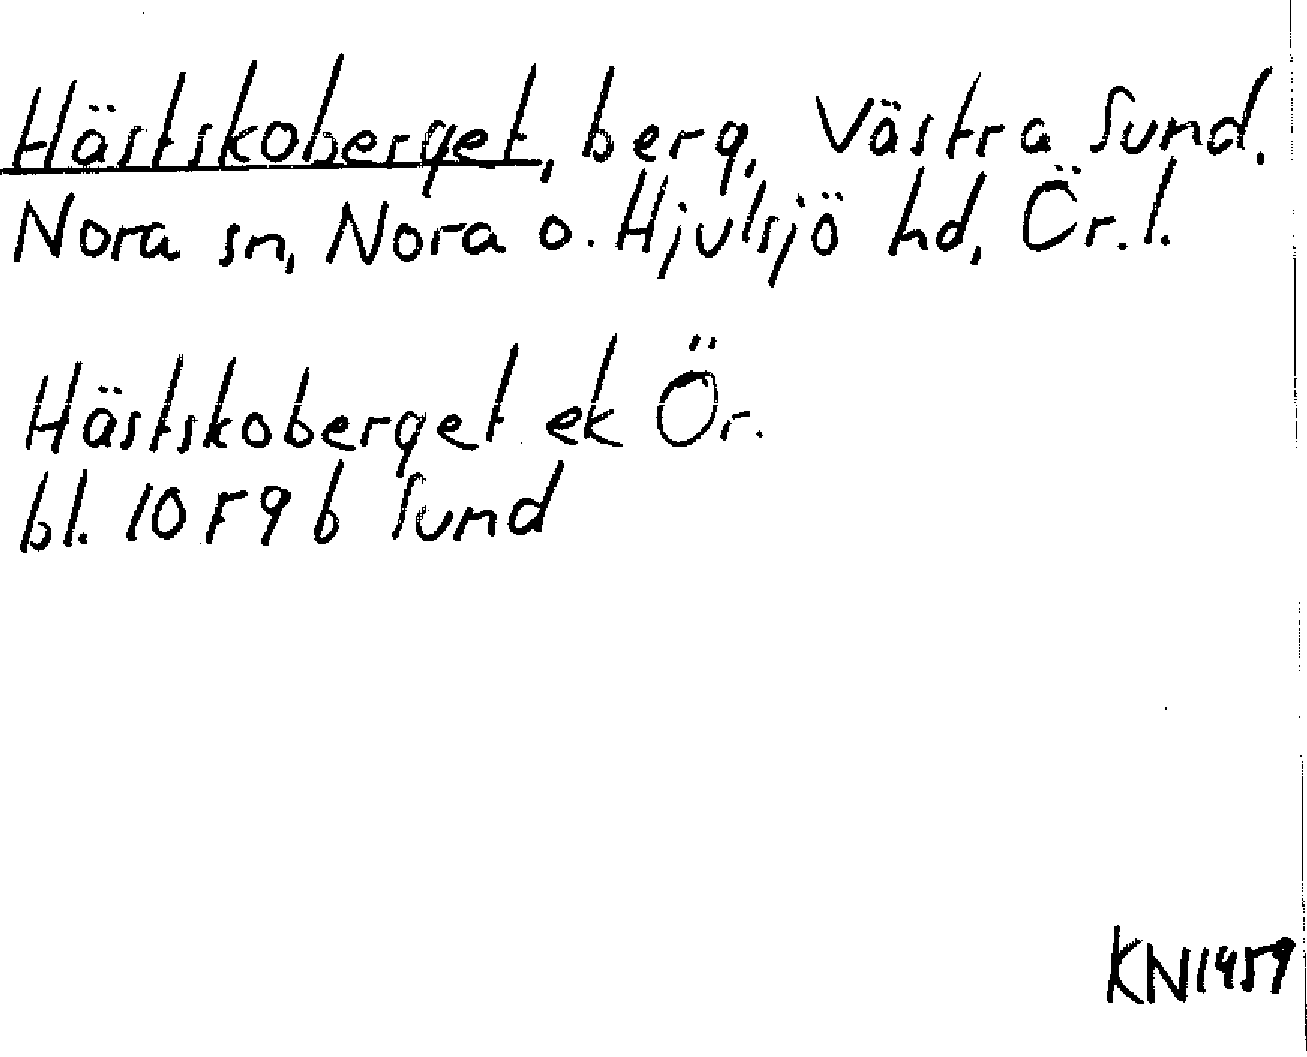 Hästskoberget, berg, Västra Sund.
Nora sn, Nora o. Hjulsjö hd, Ör. l.
Hästskoberget ek Ör.
bl. 10 F 9 b Sund
KN 1959